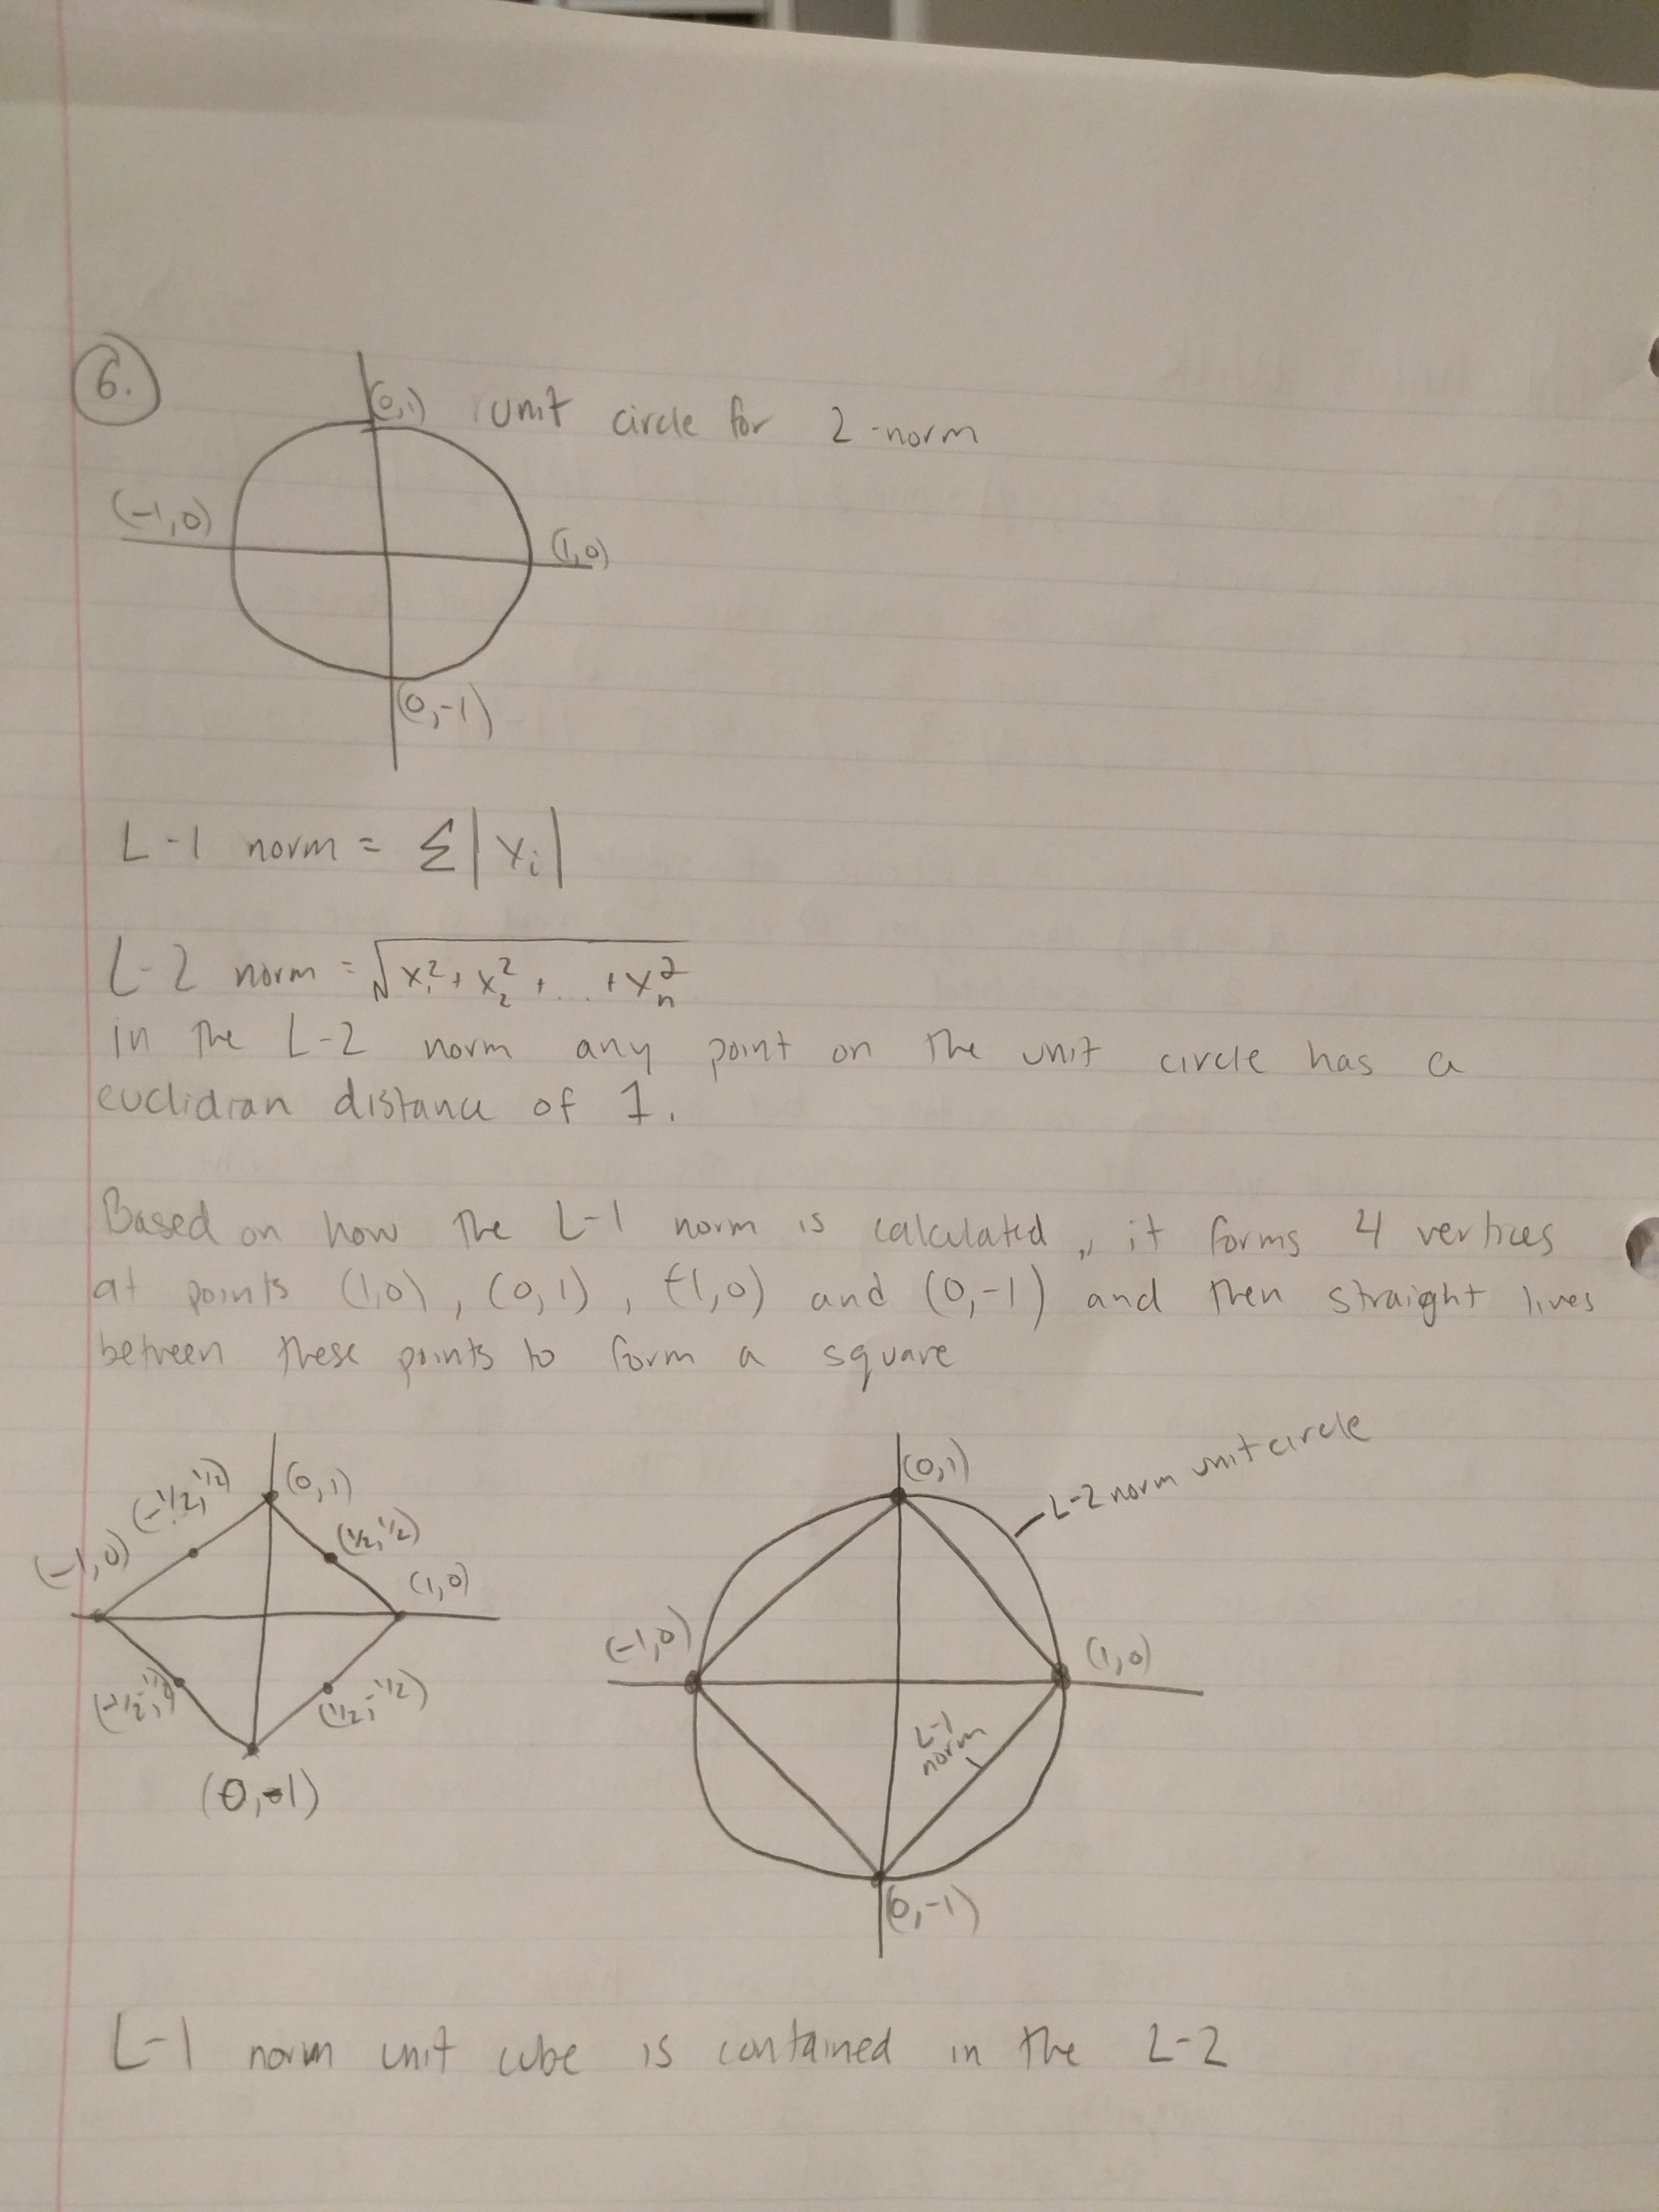 6.
(0,1) unit circle for 2-norm
(-1,0)
(1,0)
(0,-1)
L-1 norm = Σ|xᵢ|
L-2 norm = √x₁²+x₂²+...+xₙ²
in the L-2 norm any point on the unit circle has a
euclidian distance of 1.
Based on how the L-1 norm is calculated, it forms 4 vertices
at points (1,0), (0,1), (-1,0) and (0,-1) and then straight lines
between these points to form a square
(0,1)
(-1/2,1/2)
(1/2,1/2)
(-1,0)
(1,0)
(-1/2,-1/2)
(1/2,-1/2)
(0,-1)
(0,1)
L-2 norm unit circle
(-1,0)
(1,0)
L-1
norm
(0,-1)
L-1 norm unit cube is contained in the L-2